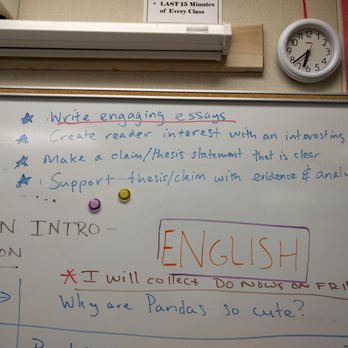 • LAST 15 Minutes
of Every Class
Write engaging essays
Create reader interest with an interesting
Make a claim/thesis statement that is clear
Support thesis/claim with evidence & analy
N INTRO-
ON
ENGLISH
* I will collect DO NOWS ON FRI
Why are Pandas so cute?